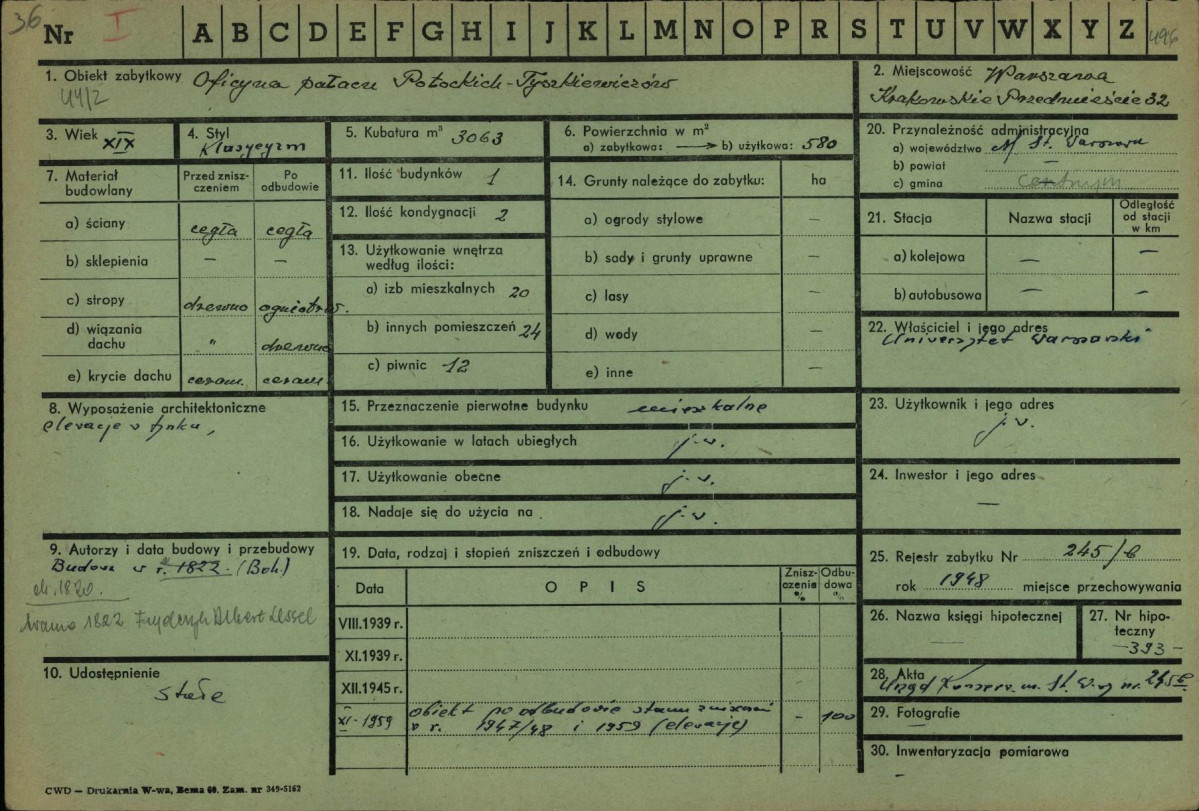 36
Nr I A B C D E F G H I J K L M N O P R S T U V W X Y Z 496
1. Obiekt zabytkowy Oficyna pałacu Potockich-Tyszkiewiczów
44/2
2. Miejscowość Warszawa
Krakowskie Przedmieście 32
3. Wiek XIX
4. Styl
Klasycyzm
5. Kubatura m³ 3063
6. Powierzchnia w m²
a) zabytkowa: → b) użytkowa: 580
7. Materiał budowlany
Przed znisz-czeniem
Po odbudowie
a) ściany cegła cegła
b) sklepienia — —
c) stropy drewno ogniotrw.
d) wiązania dachu „ drewno
e) krycie dachu ceram. ceram.
8. Wyposażenie architektoniczne
elewacje w tynku,
9. Autorzy i data budowy i przebudowy
Budowa w r. 1822. (Boh.)
ok. 1820.
1822 Fryderyk Albert Lessel
10. Udostępnienie
stałe
11. Ilość budynków 1
12. Ilość kondygnacji 2
13. Użytkowanie wnętrza
według ilości:
a) izb mieszkalnych 20
b) innych pomieszczeń 24
c) piwnic 12
14. Grunty należące do zabytku: ha
a) ogrody stylowe —
b) sady i grunty uprawne —
c) lasy —
d) wody —
e) inne —
15. Przeznaczenie pierwotne budynku mieszkalne
16. Użytkowanie w latach ubiegłych j.w.
17. Użytkowanie obecne j.w.
18. Nadaje się do użycia na j.w.
19. Data, rodzaj i stopień zniszczeń i odbudowy
Data O P I S Znisz-czenia % Odbu-dowa %
VIII.1939 r.
XI.1939 r.
XII.1945 r.
XI-1959 obiekt po odbudowie stanu – 100
w r. 1947/48 i 1959 (elewacje)
20. Przynależność administracyjna
a) województwo M St. Warszawa
b) powiat —
c) gmina centrum
21. Stacja Nazwa stacji Odległość od stacji w km
a) kolejowa — —
b) autobusowa — —
22. Właściciel i jego adres
Uniwersytet Warszawski
23. Użytkownik i jego adres
j.w.
24. Inwestor i jego adres
—
25. Rejestr zabytku Nr 245/6
rok 1948 miejsce przechowywania
26. Nazwa księgi hipotecznej
27. Nr hipo-
teczny
—393—
28. Akta
Urząd Konserw. m. St. W-wy nr.
29. Fotografie
30. Inwentaryzacja pomiarowa
–
CWD — Drukarnia W-wa, Bema 60. Zam. nr 349-5162